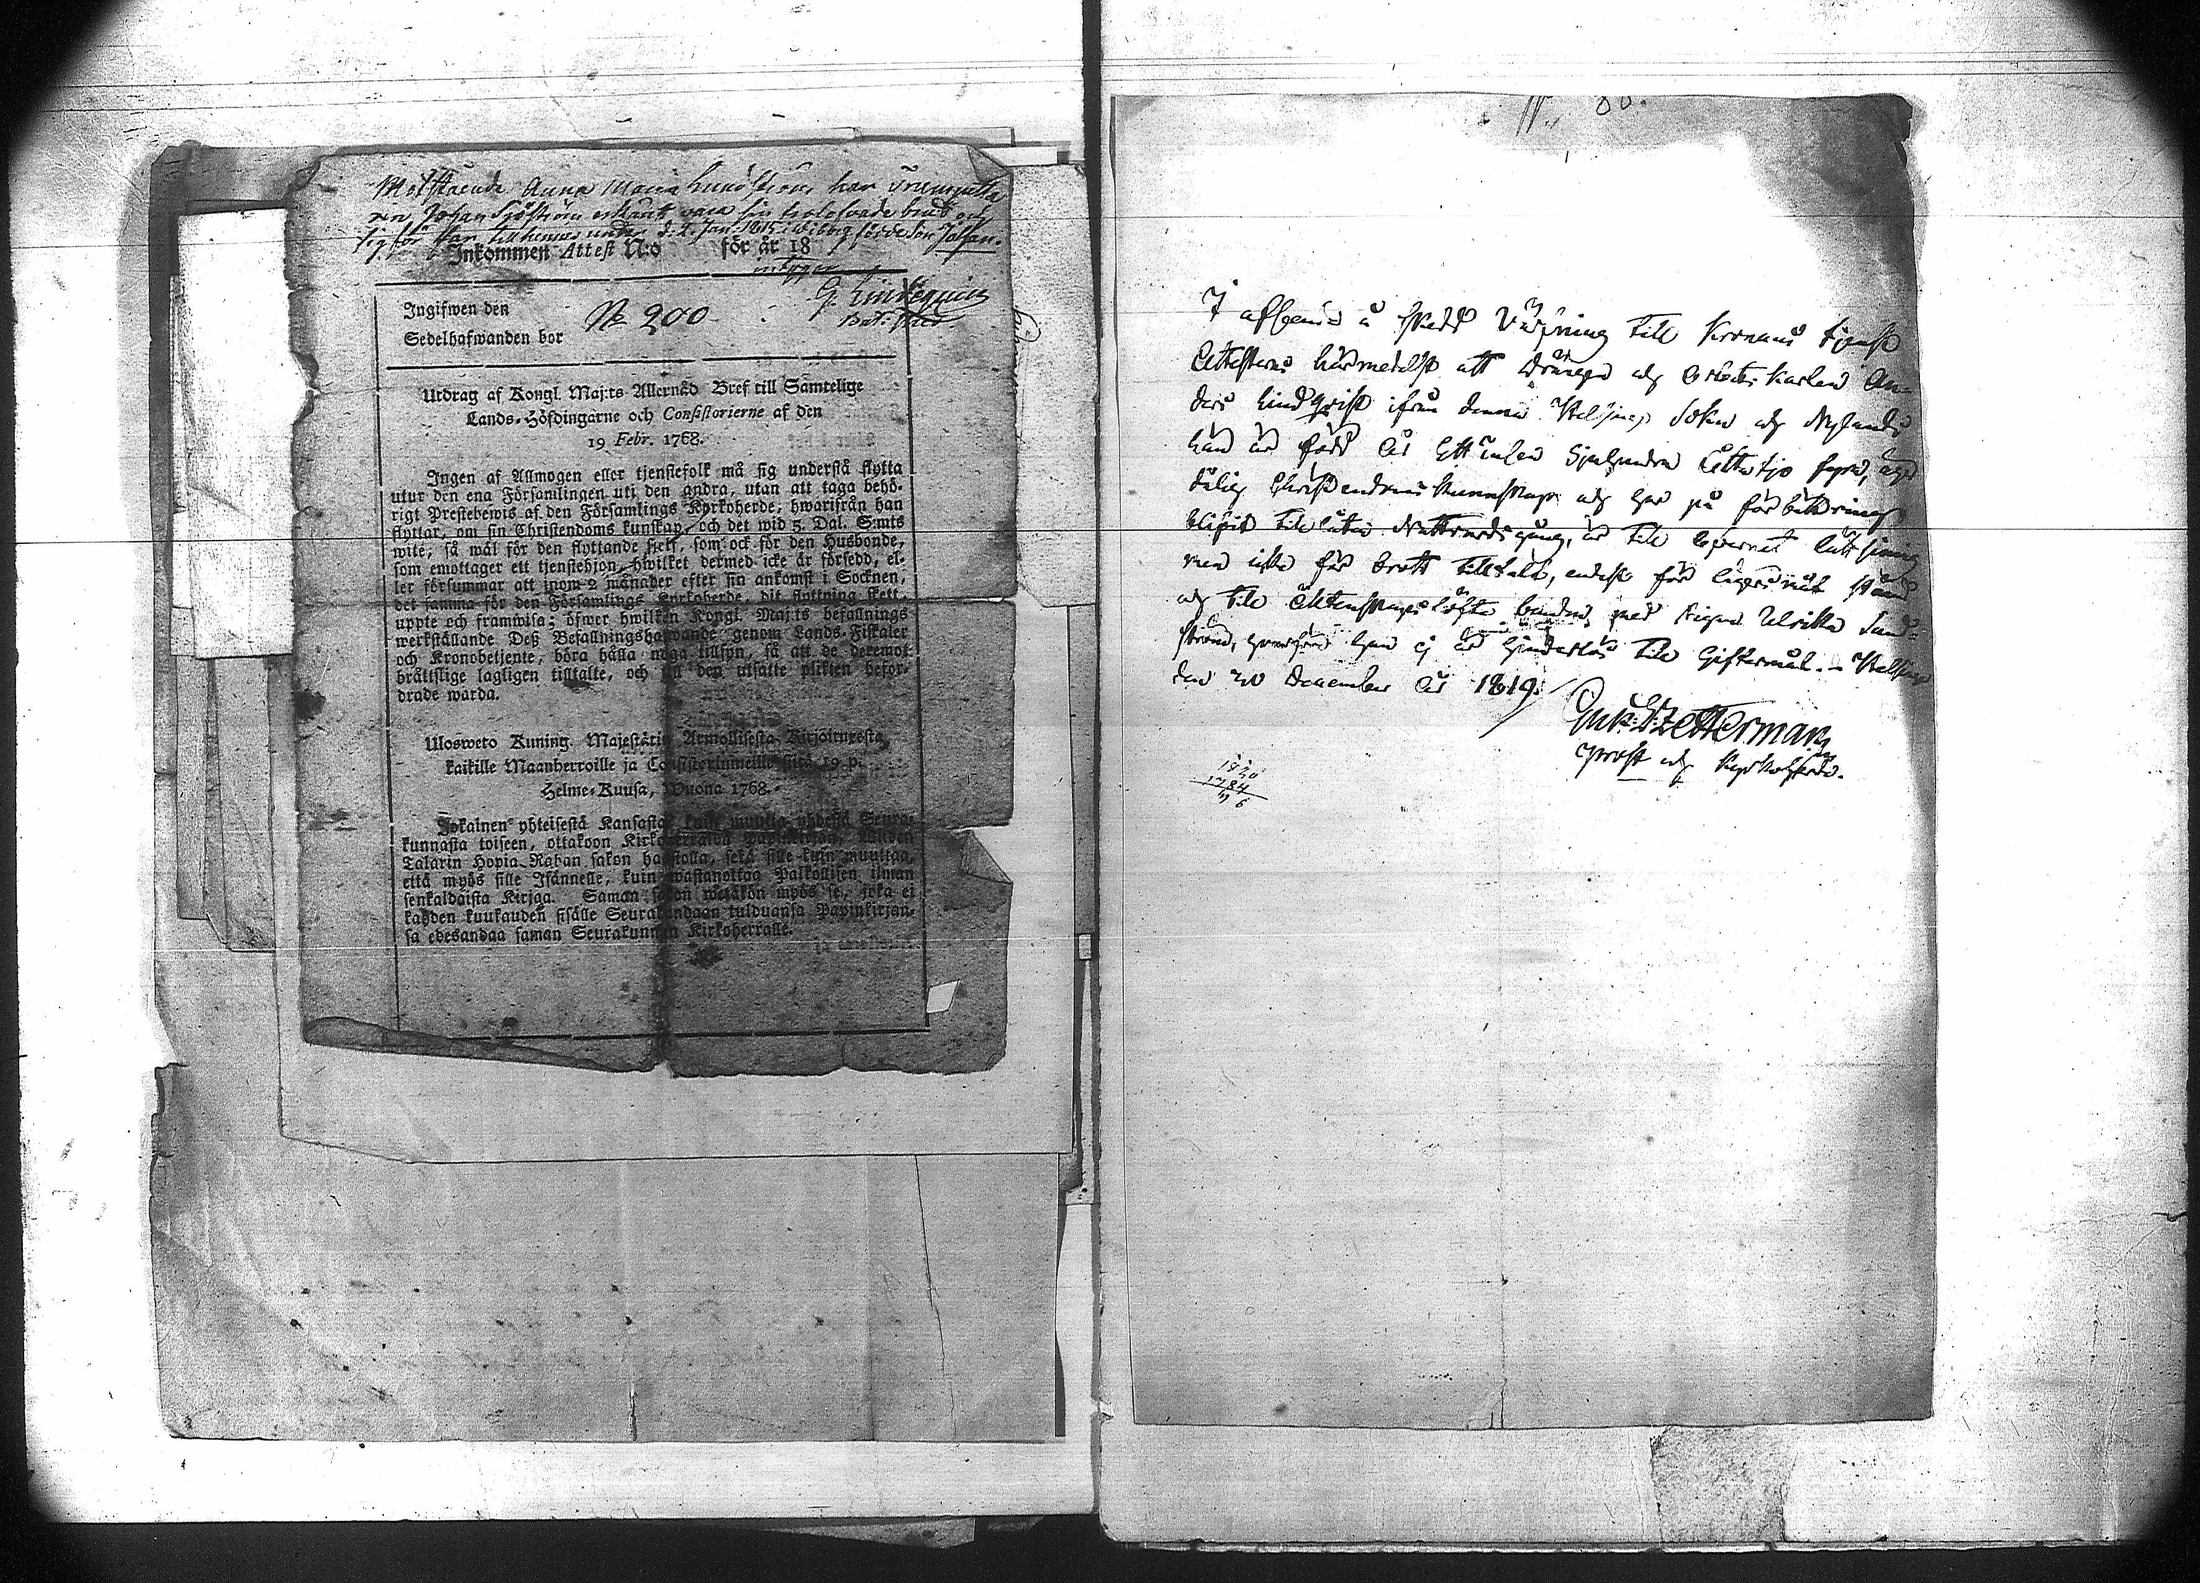 Motstående Anna Maria Lundström har Trumpetta
ren Johan Sjöström erkänt vara sin trolofvade brud och
sig för far till hennes under d. 2. Jan. 1815 i Wiborg födde Son Johan.
Inkommen Attest N:o för år 18
intygar
G. Lindequist
Bat. Pred.
Ingifwen den
Sedelhafwanden bor
No 200
Utdrag af Kongl. Maj:ts Allernåd Bref till Samtelige
Lands-Höfdingarne och Consistorierne af den
19 Febr. 1768.
Ingen af Allmogen eller tjenstefolk må sig understå flytta
utur den ena Församlingen uti den andra, utan att taga behö-
rigt Prestebewis af den Församlings Kyrkoherde, hwarifrån han
flyttar, om sin Christendoms kunskap, och det wid 5. Dal. S:mts
wite, så wäl för den flyttande sielf, som ock för den Husbonde,
som emottager ett tjenstehjon, hwilket dermed icke är försedd, el-
ler försummar att inom 2 månader efter sin ankomst i Socknen,
det samma för den Församlings Kyrkoherde, dit flyttning skett,
uppte och framwisa; öfwer hwilken Kongl. Maj:ts befallnings
werkställande Deß Befallningshafwande genom Lands-Fiskaler
och Kronobetjente, böra hålla noga tillsyn, så att de deremot
bråttslige lagligen tilltalte, och till den utsatte plikten befor-
drade warda.
Ulosweto Kuning. Majestätin Armollisesta Kirjoituxesta
kaikille Maanherroille ja Consistoriumeille siitä 19 p.
Helme-Kuusa, Wuona 1768.
Jokainen yhteisestä Kansasta, kuin muutta yhdestä Seura-
kunnasta toiseen, ottakoon Kirkoherralda Papinkirjan, Wiiden
Talarin Hopia-Rahan sakon haastolla, sekä sille kuin muuttaa,
että myös sille Isännelle, kuin wastanottaa Palkollisen ilman
senkaldaista Kirjaa. Saman sakon wetäkön myös se, joka ei
kahden kuukauden sisälle Seurakundaan tulduansa Papinkirjan-
sa edesandaa saman Seurakunnan Kirkoherralle.
N. 80.
I afseende å skedd Värfning till Kronans tjenst
Attesteras härmedelst att Drängen och Arbets karlen An-
ders Lindqvist ifrån denna Helsinge Sokn och Nylands
Län är född År Ett tusen Sjuhundra Åttatijo fyra, äger
dålig Christendoms kunskap och har på förbättring
blifvit tillåten Nattvardsgång, är till lefvernet lättsinnig
men icke för brott tilltalad, endast för lägersmål stånd
och till äktenskaps löfte bunden med Pigan Ulrika Sand-
ström, hvarföre han ej är hinderlös till Giftermål. - Helsinge
den 20 December År 1819.
Zetterman
Prost och Kyrkoherde.
1820
1784